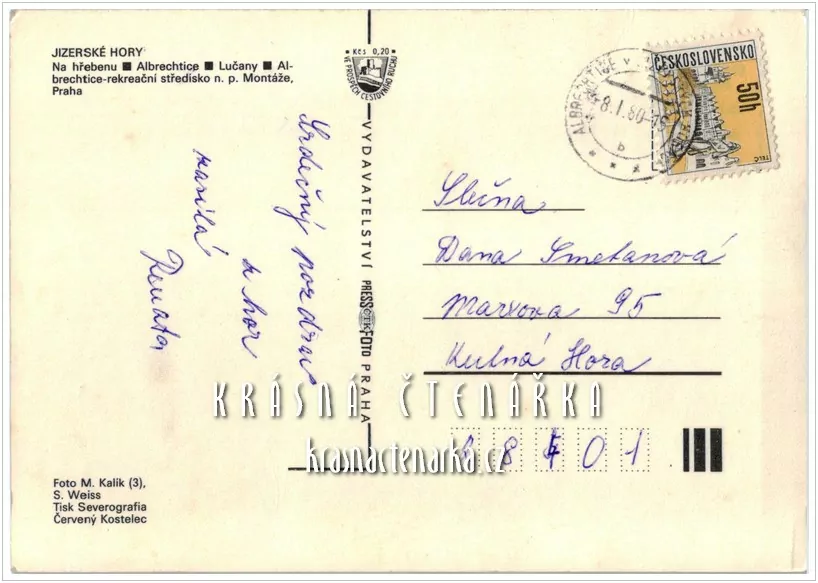 JIZERSKÉ HORY
Na hřebenu ■ Albrechtice ■ Lučany ■ Al-
brechtice-rekreační středisko n. p. Montáže,
Praha
Kčs 0,20
VE PROSPĚCH CESTOVNÍHO RUCHU
VYDAVATELSTVÍ PRESSFOTO PRAHA
ČTK
Srdečný pozdrav
z hor
zasílá
Renata
ČESKOSLOVENSKO
50h
TELČ
ALBRECHTICE V
8.1.80
b
Slečna
Dana Smetanová
Marxova 95
Kutná Hora
01
KRÁSNÁ ČTENÁŘKA
krasnactenarka.cz
Foto M. Kalík (3),
S. Weiss
Tisk Severografia
Červený Kostelec